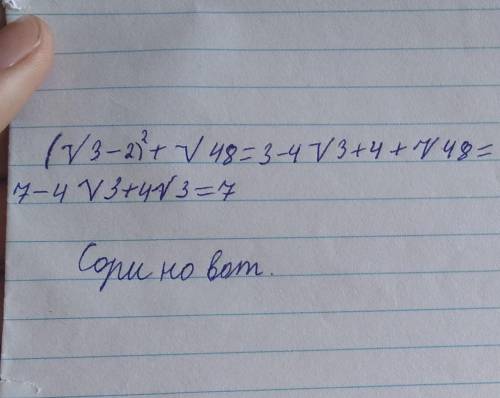 (√3-2)²+√48=3-4√3+4+√48=
7-4√3+4√3=7
Сори но вот.